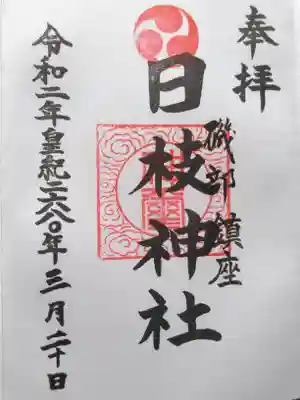 奉拝
磯部 鎮座
日枝神社
令和二年皇紀二六八〇年三月二十日